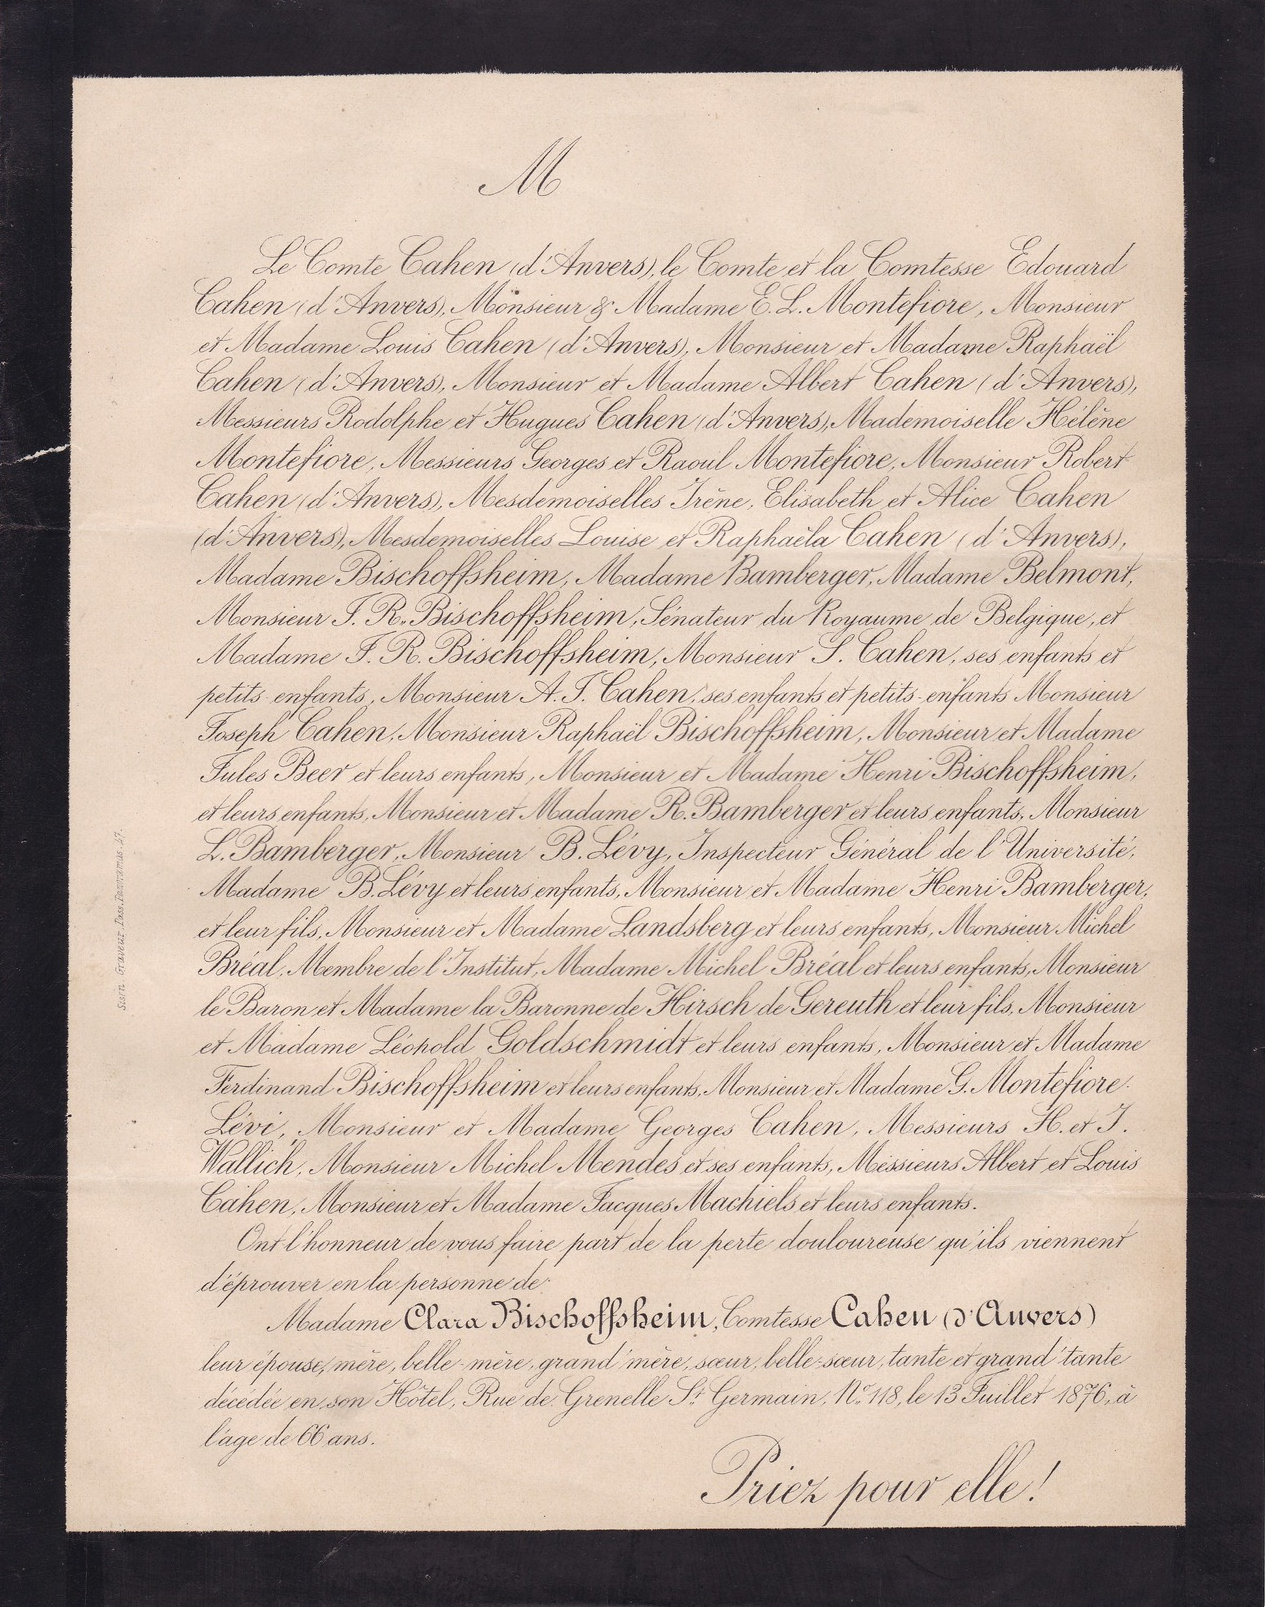 M
Le Comte Cahen (d'Anvers), le Comte et la Comtesse Edouard
Cahen (d'Anvers), Monsieur & Madame E. L. Montefiore, Monsieur
et Madame Louis Cahen (d'Anvers), Monsieur et Madame Raphaël
Cahen (d'Anvers), Monsieur et Madame Albert Cahen (d'Anvers),
Messieurs Rodolphe et Hugues Cahen (d'Anvers), Mademoiselle Hélène
Montefiore, Messieurs Georges et Raoul Montefiore, Monsieur Robert
Cahen (d'Anvers), Mesdemoiselles Irène, Elisabeth et Alice Cahen
(d'Anvers), Mesdemoiselles Louise et Raphaëla Cahen (d'Anvers),
Madame Bischoffsheim, Madame Bamberger, Madame Belmont,
Monsieur J. R. Bischoffsheim, Sénateur du Royaume de Belgique, et
Madame J. R. Bischoffsheim, Monsieur S. Cahen, ses enfants et
petits enfants, Monsieur A. J. Cahen, ses enfants et petits-enfants Monsieur
Joseph Cahen, Monsieur Raphaël Bischoffsheim, Monsieur et Madame
Jules Beer et leurs enfants, Monsieur et Madame Henri Bischoffsheim,
et leurs enfants, Monsieur et Madame R. Bamberger et leurs enfants, Monsieur
L. Bamberger, Monsieur B. Lévy, Inspecteur Général de l'Université,
Madame B. Lévy et leurs enfants, Monsieur et Madame Henri Bamberger,
et leur fils, Monsieur et Madame Landsberg et leurs enfants, Monsieur Michel
Bréal, Membre de l'Institut, Madame Michel Bréal et leurs enfants, Monsieur
le Baron et Madame la Baronne de Hirsch de Gereuth et leur fils, Monsieur
et Madame Léopold Goldschmidt et leurs enfants, Monsieur et Madame
Ferdinand Bischoffsheim et leurs enfants, Monsieur et Madame G. Montefiore-
Lévi, Monsieur et Madame Georges Cahen, Messieurs H. et J.
Wallich, Monsieur Michel Mendes et ses enfants, Messieurs Albert et Louis
Cahen, Monsieur et Madame Jacques Machiels et leurs enfants.
Ont l'honneur de vous faire part de la perte douloureuse qu'ils viennent
d'éprouver en la personne de
Madame Clara Bischoffsheim, Comtesse Cahen (d'Anvers)
leur épouse, mère, belle-mère, grand'mère, sœur, belle-sœur, tante et grand'tante
décédée en son Hôtel, Rue de Grenelle St Germain, No. 118, le 13 Juillet 1876, à
l'âge de 66 ans.
Priez pour elle!
Graveur Pass. Panoramas. 57.